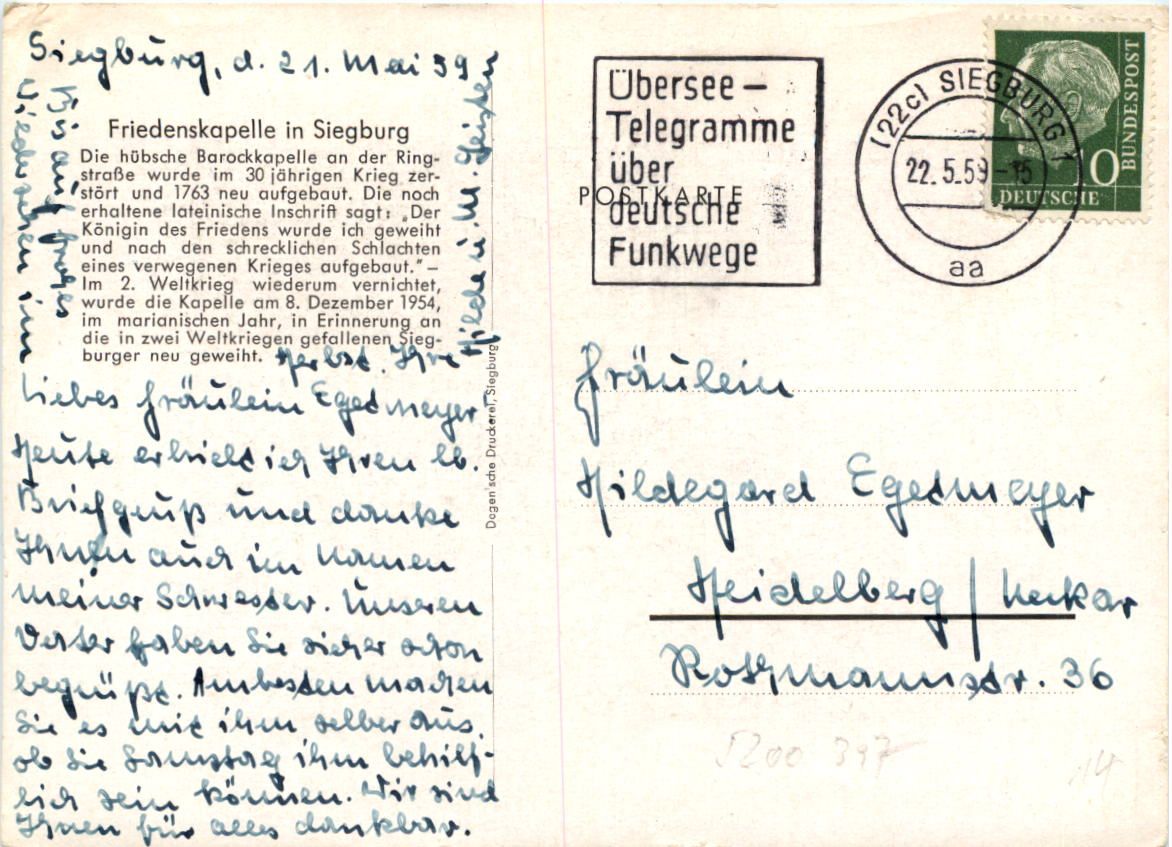 Siegburg, d. 21. Mai 59
Friedenskapelle in Siegburg
Die hübsche Barockkapelle an der Ring-
straße wurde im 30 jährigen Krieg zer-
stört und 1763 neu aufgebaut. Die noch
erhaltene lateinische Inschrift sagt: „Der
Königin des Friedens wurde ich geweiht
und nach den schrecklichen Schlachten
eines verwegenen Krieges aufgebaut.“ –
Im 2. Weltkrieg wiederum vernichtet,
wurde die Kapelle am 8. Dezember 1954,
im marianischen Jahr, in Erinnerung an
die in zwei Weltkriegen gefallenen Sieg-
burger neu geweiht.
Liebes Fräulein Egetmeyer
Heute erhielt ich Ihren lb.
Briefgruß und danke
Ihnen auch im Namen
meiner Schwester. Unseren
Vater haben Sie sicher schon
begrüßt. Am besten machen
Sie es mit ihm selber aus,
ob Sie Samstag ihm behilf-
lich sein können. Wir sind
Ihnen für alles dankbar.
Bis auf frohes
Wiedersehen im
Herbst. Ihre
Hilde u. M. Geisten
Dogen'sche Druckerei, Siegburg
POSTKARTE
Übersee –
Telegramme
über
deutsche
Funkwege
(22c) SIEGBURG 1
22.5.59-15
aa
10
DEUTSCHE
BUNDESPOST
Fräulein
Hildegard Egetmeyer
Heidelberg / Neckar
Rothmannstr. 36
5200 397
14